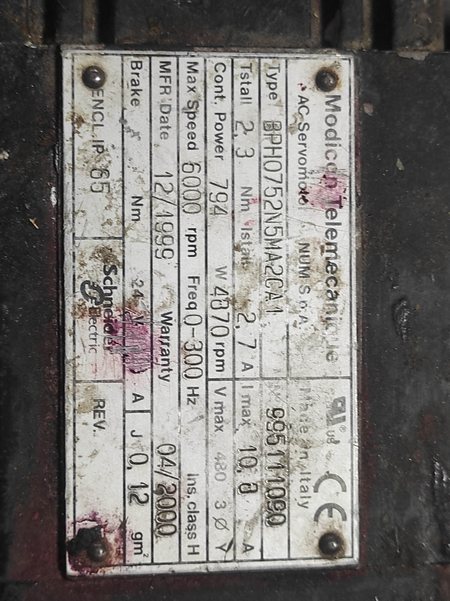 Modicon Telemecanique
AC Servomotor NUM S.p.A. Made in Italy
Type BPH0752N5MA2CA1 995111090
Tstall 2,3 Nm Istall 2,7 A I max 10,8 A
Cont. Power 794 W 4370 rpm V max 480 3 Ø Y
Max Speed 6000 rpm Freq 0-300 Hz Ins. class H
MFR Date 12/1999 Warranty 04/2000
Brake Nm 24 V A J 0,12 gm²
ENCL. IP 65 Schneider Electric REV.